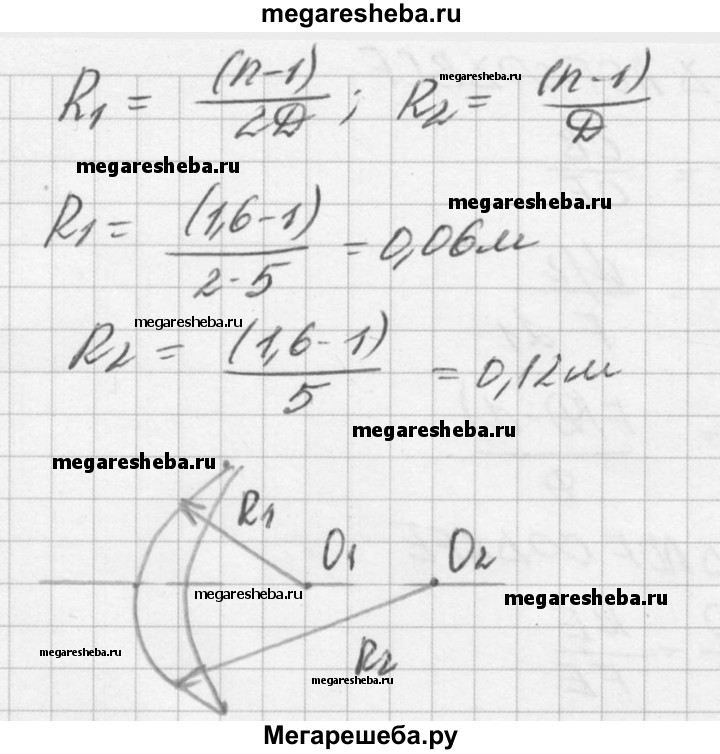 megaresheba.ru
R1 = (n-1)/2D ; R2 = (n-1)/D
megaresheba.ru
megaresheba.ru
megaresheba.ru
R1 = (1,6-1)/2·5 = 0,06м
megaresheba.ru
R2 = (1,6-1)/5 = 0,12м
megaresheba.ru
megaresheba.ru
R1
O1 O2
megaresheba.ru
megaresheba.ru
megaresheba.ru
R2
megaresheba.ru
Мегарешеба.ру